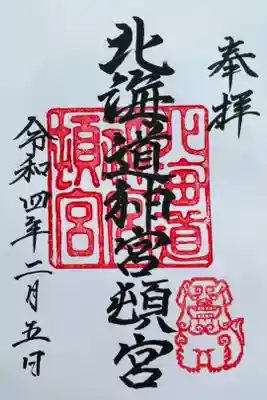 奉拝
北海道神宮頓宮
北海道神宮頓宮
令和四年二月五日